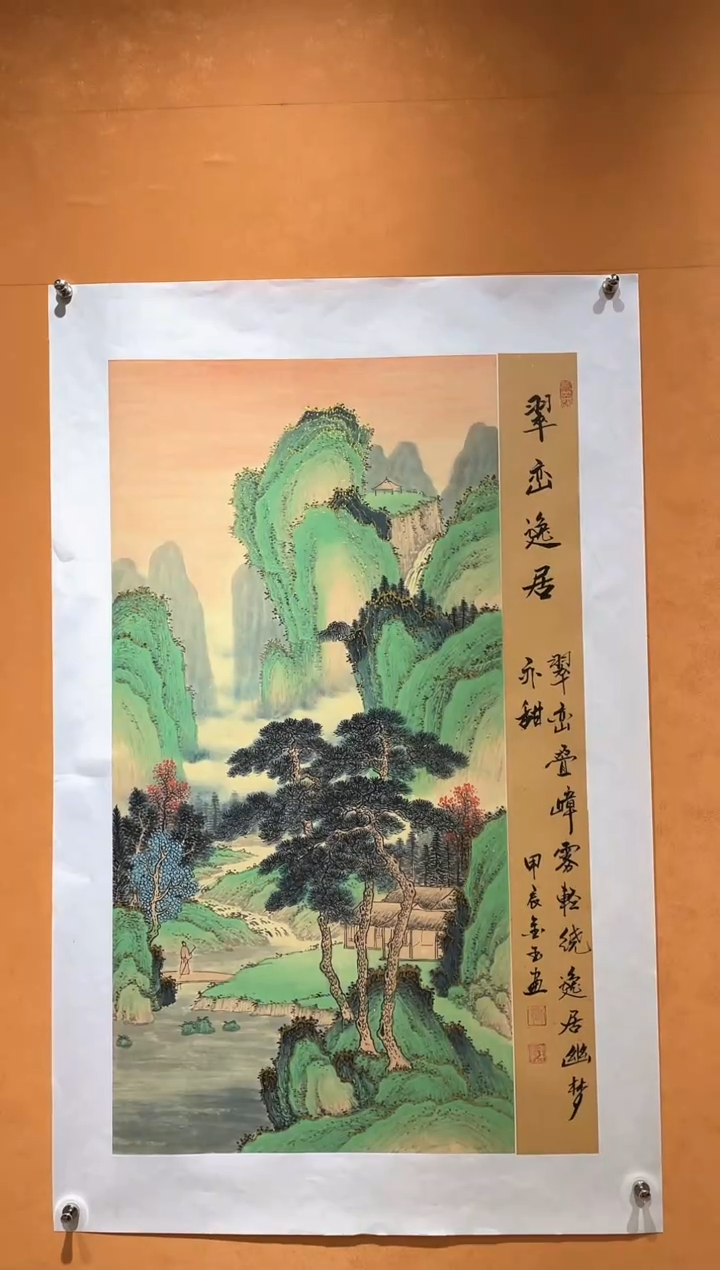 翠峦逸居
翠峦叠嶂雾轻绕逸居幽梦
亦甜
甲辰金玉画